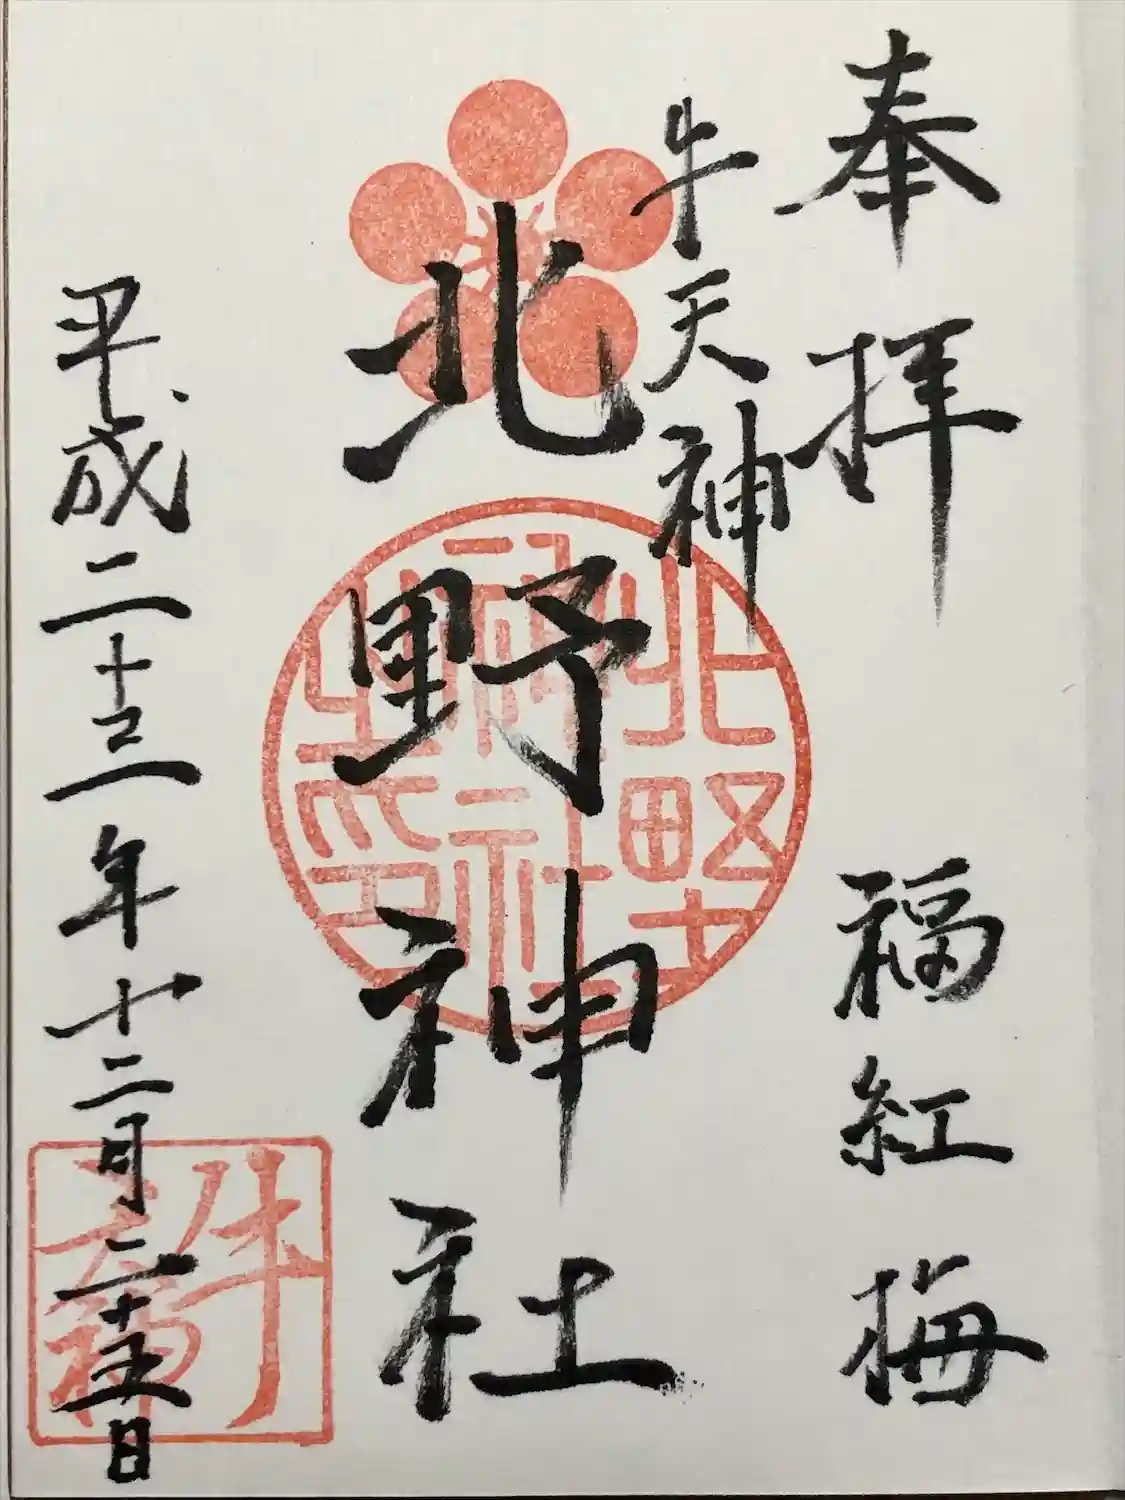 奉拝　福紅梅
牛天神
北野神社
平成二十三年十二月二十五日
北野
神社
之印
牛
天神